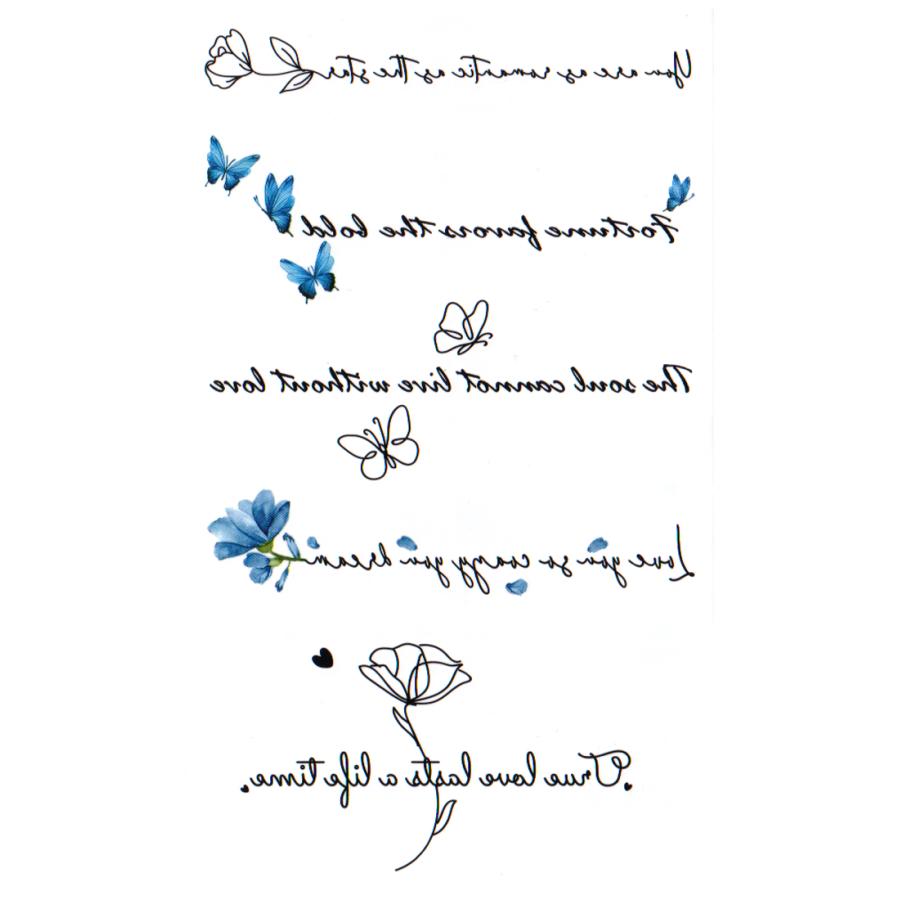 You are as romantic as the star
Fortune favors the bold
The soul cannot live without love
Love you so crazy you dream
True love lasts a life time.